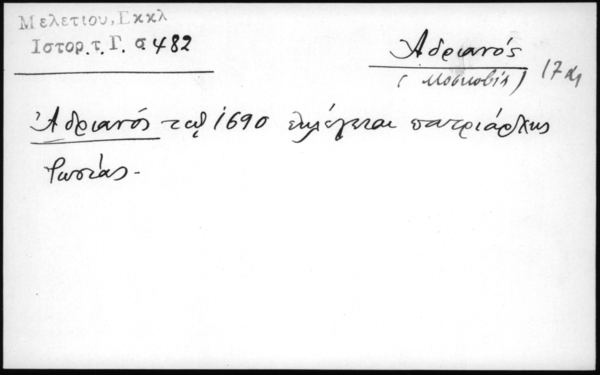 Μελετίου, Εκκλ
Ιστορ. τ. Γ. σ 482
Ἀδριανός
(Μοσκοβία) 17 αι
Ἀδριανός τῷ 1690 ἐκλέγεται πατριάρχης
Ρωσίας.-